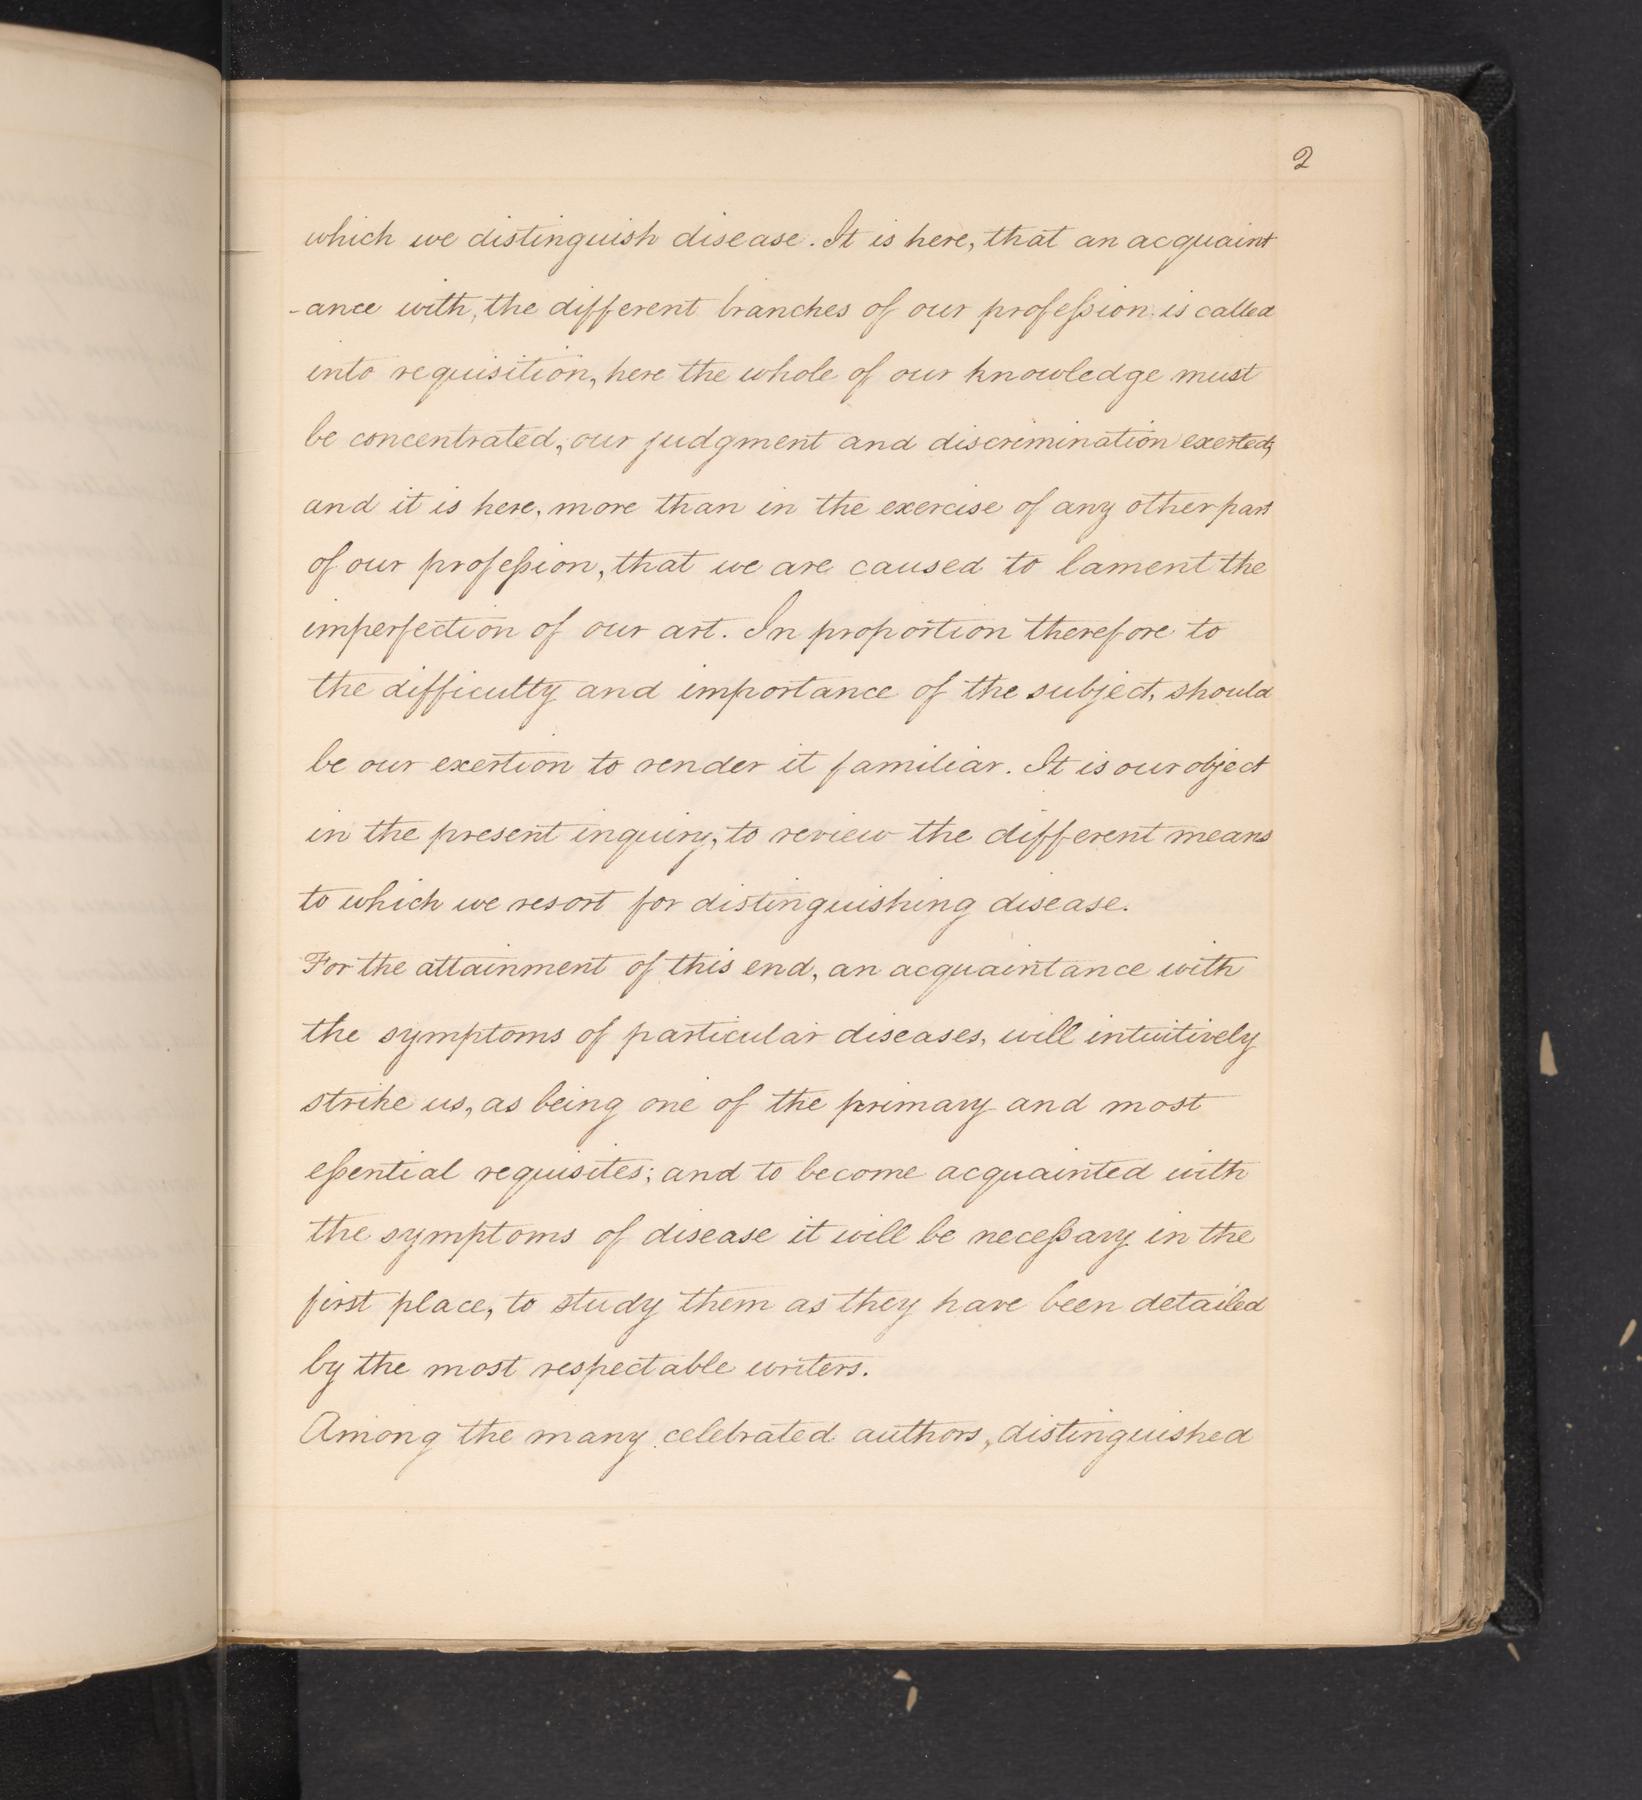 2
which we distinguish disease. It is here, that an acquaint
-ance with, the different branches of our profeſsion is called
into requisition, here the whole of our knowledge must
be concentrated, our judgment and discrimination exerted;
and it is here, more than in the exercise of any other part
of our profeſsion, that we are caused to lament the
imperfection of our art. In proportion therefore to
the difficulty and importance of the subject, should
be our exertion to render it familiar. It is our object
in the present inquiry, to review the different means
to which we resort for distinguishing disease.
For the attainment of this end, an acquaintance with
the symptoms of particular diseases, will intuitively
strike us, as being one of the primary and most
eſsential requisites; and to become acquainted with
the symptoms of disease it will be neceſsary in the
first place, to study them as they have been detailed
by the most respectable writers.
Among the many celebrated authors, distinguished